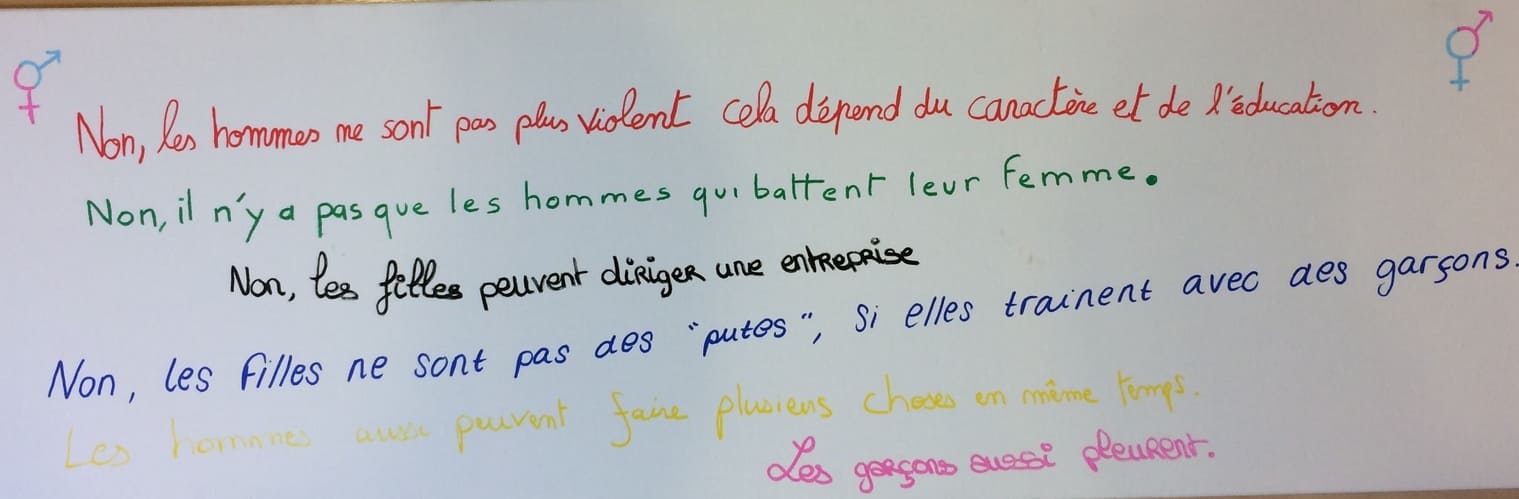 Non, les hommes ne sont pas plus violent cela dépend du caractère et de l'éducation.
Non, il n'y a pas que les hommes qui battent leur femme.
Non, les filles peuvent diriger une entreprise
Non, les filles ne sont pas des "putes", si elles trainent avec des garçons.
Les hommes aussi peuvent faire plusiens choses en même temps.
Les garçons aussi pleurent.